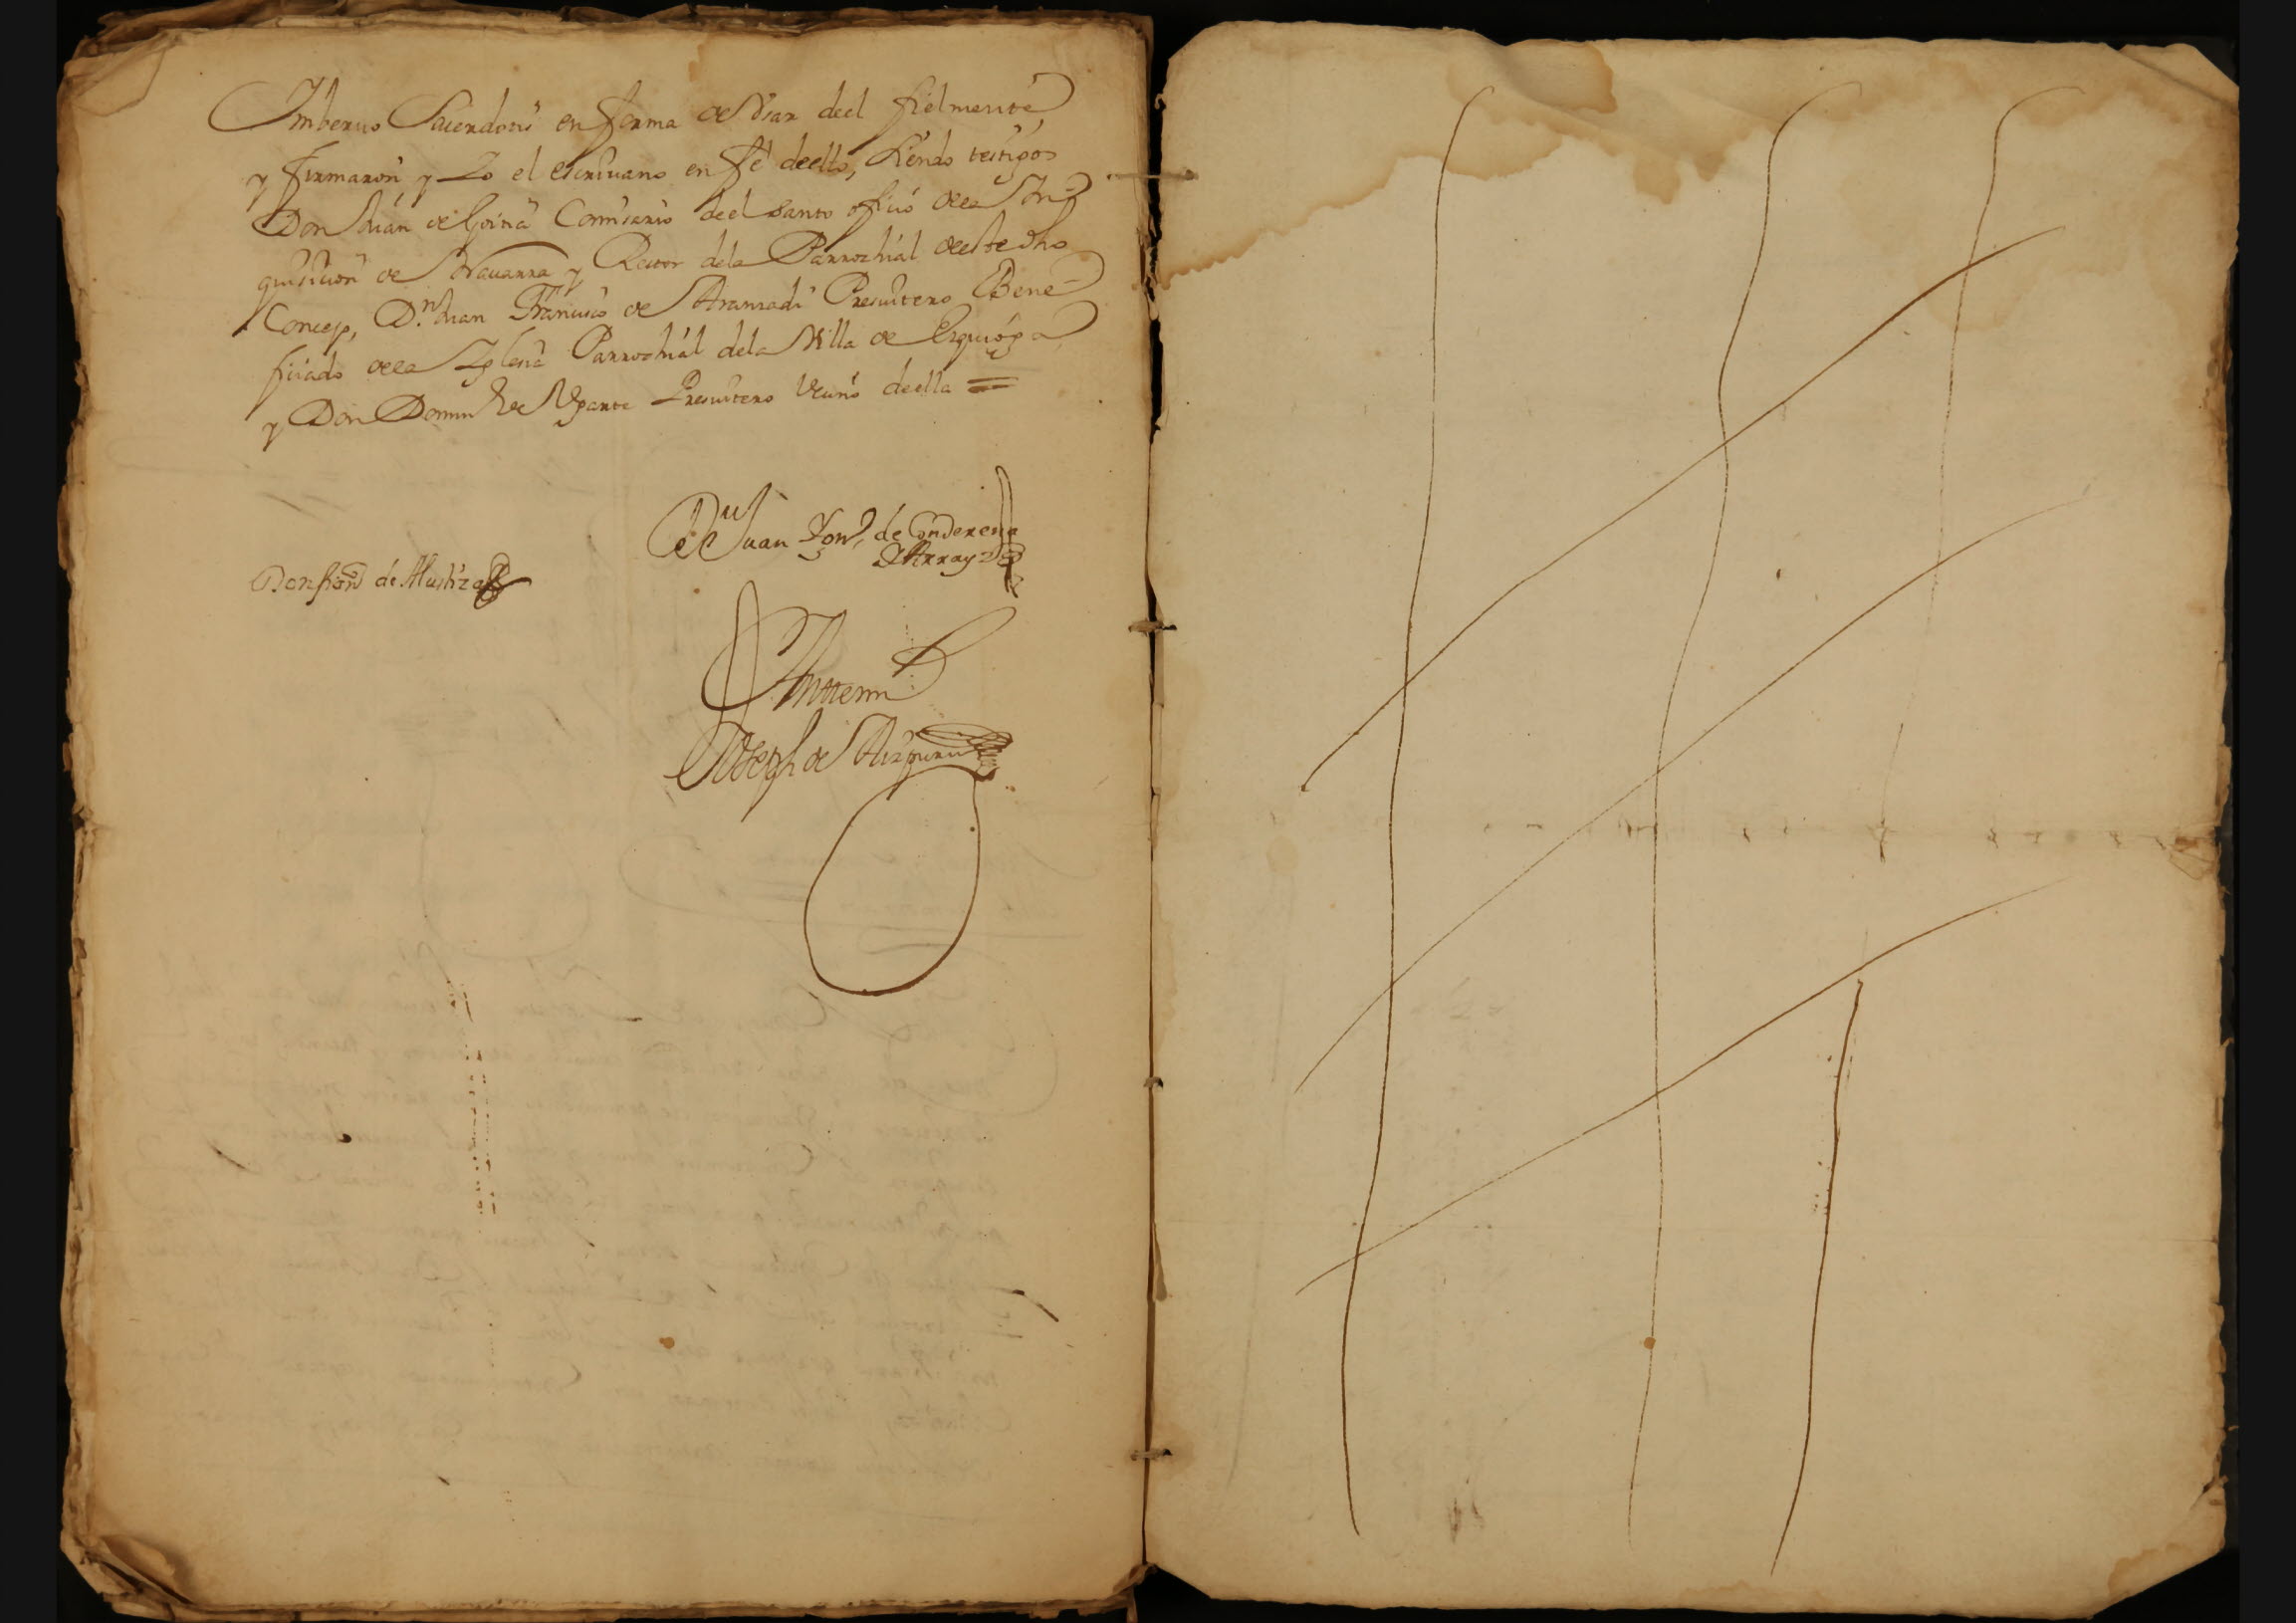 Inberuo Sacerdotis en forma de Vsar deel fielmente,
y firmaron y Yo el escriuano en fe deello, siendo testigos
Don Juan de Goina Comisario deel santo oficio dela In=
quisicion de Nauarra y Rector dela Parrochial deeste dho
Concejo, D.n Juan Francisco de Aranzadi Presuitero Bene=
ficiado dela Yglesia Parrochial dela Villa de Ezquioga
y Don Domin de Vgarte Presuitero Vecino deella =
Juan de
Arraya
Don de Alustiza
Antemi
Joseph de Aizpuru